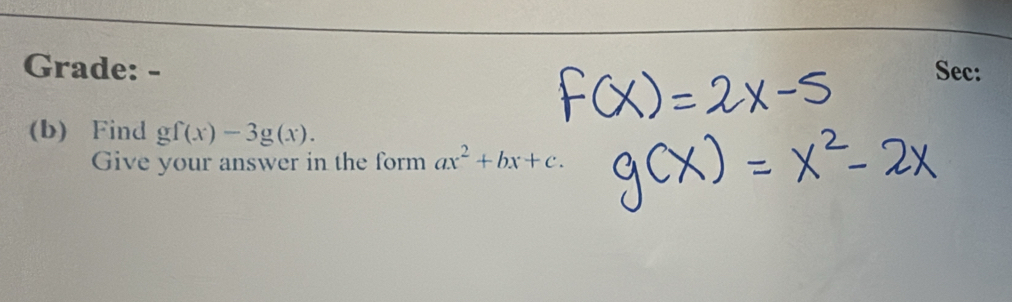 Grade: -
Sec:
f(x) = 2x-5
(b) Find gf(x) – 3g(x).
Give your answer in the form ax² + bx + c.
g(x) = x² - 2x